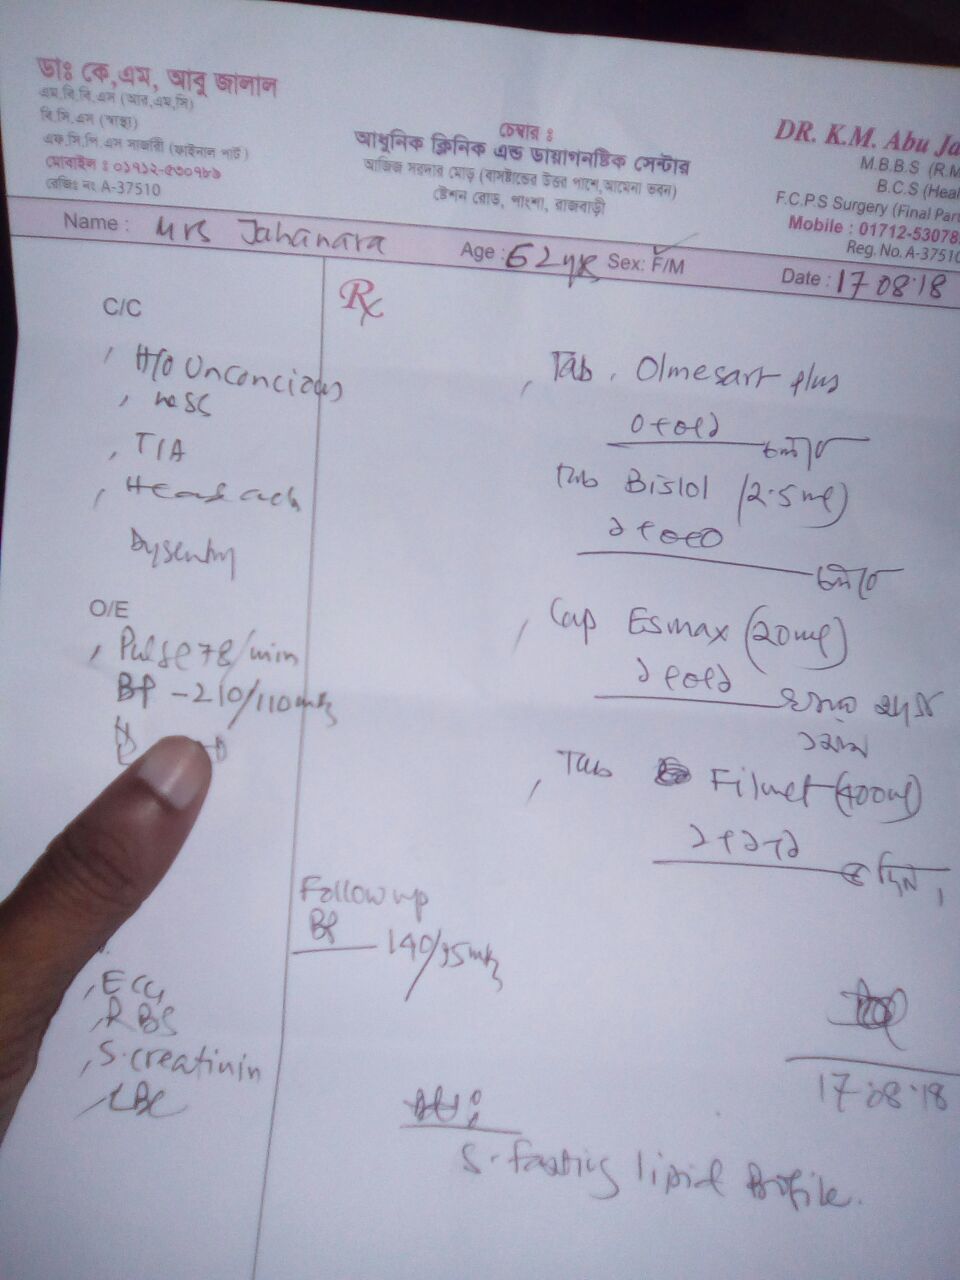 ডাঃ কে,এম, আবু জালাল
এম,বি,বি,এস (আর,এম,সি)
বি,সি,এস (স্বাস্থ্য)
এফ,সি,পি,এস সার্জারী (ফাইনাল পার্ট)
মোবাইল : ০১৭১২-৫৩০৭৮৯
রেজিঃ নং A-37510
চেম্বার :
আধুনিক ক্লিনিক এন্ড ডায়াগনষ্টিক সেন্টার
আজিজ সরদার মোড় (বাসষ্টান্ডের উত্তর পাশে, আমেনা ভবন)
ষ্টেশন রোড, পাংশা, রাজবাড়ী
DR. K.M. Abu Ja
M.B.B.S (R.M
B.C.S (Heal
F.C.P.S Surgery (Final Par
Mobile : 01712-53078
Reg. No. A-37510
Name : Mrs Jahanara Age : 62 yrs Sex: F/M Date : 17 08.18
C/C
H/O Unconcious
ness
TIA
Headach
Dysentry
O/E
Pulse 78/min
BP - 210/110
ECG
RBS
S. creatinin
CBC
Rx
Tab. Olmesart plus
0+0+১
Tab Bislol (2.5mg)
১+0+0
Cap Esmax (20mg)
১+0+১
১মাস
Tab Filmet (400mg)
১+১+১
দিন।
Follow up
BP 140/95
17.08.18
S. fasting lipid Profile.